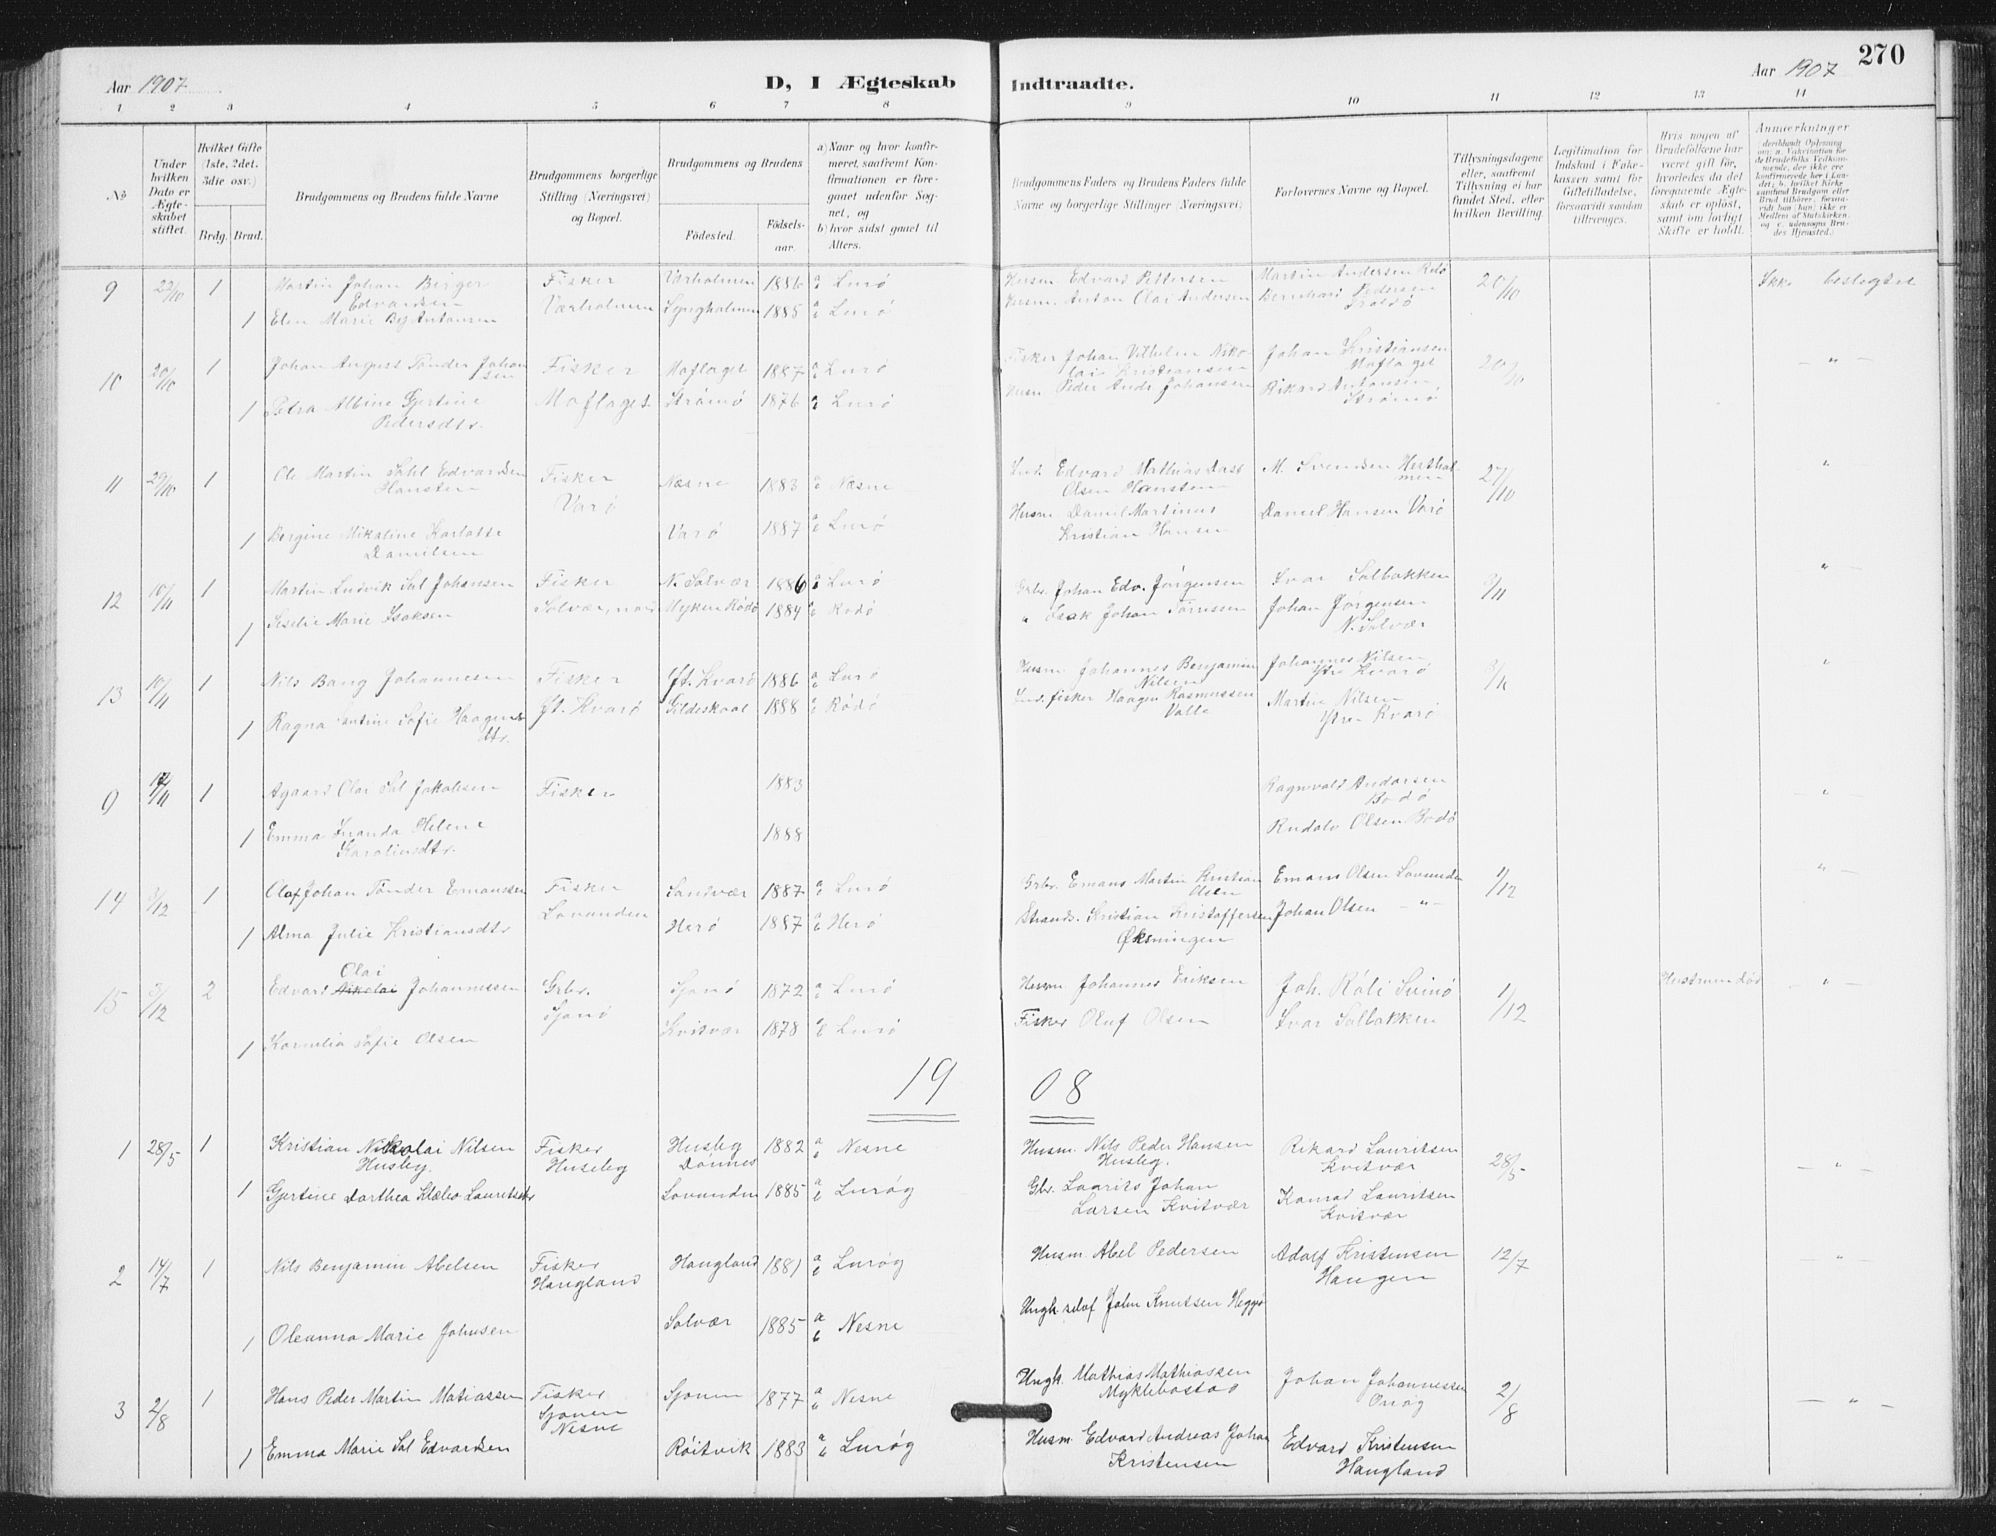 270
Aar 1907
D, I Ægteskab Indtraadte.
Aar 1907
1 2 3 4 5 6 7 8 9 10 11 12 13 14
№
Under hvilken Dato er Ægteskabet stiftet.
Hvilket Gifte (1ste, 2det, 3die osv.)
Brdg. Brud.
Brudgommens og Brudens fulde Navne
Brudgommens borgerlige Stilling (Næringsvei) og Bopæl.
Brudgommens og Brudens
Fødested.
Fødselsaar.
a) Naar og hvor konfirmeret, saafremt Konfirmationen er foregaaet udenfor Sognet, og
b) hvor sidst gaaet til Alters.
Brudgommens Faders og Brudens Faders fulde Navne og borgerlige Stillinger (Næringsvei)
Forlovernes Navne og Bopæl.
Tillysningsdagene eller, saafremt Tillysning ei har fundet Sted, efter hvilken Bevilling.
Legitimation for Indskud i Enkekassen samt for Giftetilladelse, forsaavidt saadan tiltrænges.
Hvis nogen af Brudefolkene har været gift før, hvorledes da det foregaaende Ægteskab er opløst, samt om lovligt Skifte er holdt.
Anmærkninger
9 22/10 1 Martin Johan Birger Fisker Varholmen 1886 a Lurö Husm. Edvard Pettersen Martin Andersen Rödö 20/10 Ikke beslegtet
Edvardsen Værholmen
1 Elen Marie Antonsen Lyngholmen 1885 Lurö Husm. Anton Olai Andersen Bernhard Pedersen
10 20/10 1 Johan August Tönder Johansen Fisker Moflaget 1887 Lurö Fisker Johan Vilhelm Nikolai Kristiansen Johan Kristiansen Moflaget 20/10 — " —
1 Petra Albine Gjertine Pedersdtr. Moflaget Strömö 1876 Lurö Husm. Peder Andr Johansen Rikard Antonsen, Strömö
11 29/10 1 Ole Martin Edvardsen Hansten Fisker Næsne 1883 Næsne Edvard Mathias Olsen Hansten M. Svendsen 27/10 "
Varö
1 Bergine Mikaline Karlotte Danilsen Varö 1887 Lurö Husm Daniel Martinus Kristian Hansen Daniel Hansen Varö
12 10/11 1 Martin Ludvik Sal Johansen Fisker N. Solvær 1886 Lurö Grbr. Johan Edv. Jörgensen Ivar Solbakken 3/11 "
1 Marie Isaksen Solvær, nord Myken Rödö 1884 Rödö " Isak Johan Johan Jörgensen N. Solvær
13 10/11 1 Nils Bang Johannesen Fisker Yt. Kvarö 1886 Lurö Husm. Johannes Benjamin Nilsen Johannes Nilsen Ytre Kvarö 3/11 "
1 Ragna Santine Sofie Haagensdtr. Yt. Kvarö Gildeskaal 1888 Rödö Ind. fisker Haagen Rasmussen Valle Martin Nilsen Ytre Kvarö
9 /11 1 Agaard Olai Sal Jakobsen Fisker 1883 Ragnvald Andersen Bodö — " —
1 Emma Helene Karolinsdtr. 1888 Rudolv Olsen Bodö
14 3/12 1 Olaf Johan Tönder Emanssen Fisker Sandvær 1887 Lurö Grbr. Emans Martin Kristian Olsen Emans Olsen Lovunden 1/12 " —
Lovunden
1 Alma Julie Kristiansdtr Herö 1887 Herö Strands. Kristian Kristoffersen Øksningen Johan Olsen — " —
Olai
15 3/12 2 Edvard Nikolai Johannessen Grbr. Sjonö 1872 Lurö Husm. Johannes Eriksen Joh. Röli Svinö 1/12 Hustruen död — " —
Sjonö
1 Kornelia Sofie Olsen Kvitvær 1878 Lurö Fisker Oluf Olsen Ivar Solbakken
19 08
1 28/5 1 Kristian Nikolai Nilsen Husby. Fisker Huseby Husby Dönnes 1882 a b Nesne Husm. Nils Peder Hansen Husby. Rikard Lauritsen Kvitvær 28/5 — " —
1 Gjertine Dorthea Klæbo Lauritsdtr Lovunden 1885 a b Lurøy Gbr. Laurits Johan Larsen Kvitvær Konrad Lauritsen Kvitvær
2 14/7 1 Nils Benjamin Abelsen Fisker Haugland Haugland 1881 a b Lurøy Husm. Abel Pedersen Adolf Kristensen Haugen 12/7 — " —
1 Oleanna Marie Johnsen Solvær 1885 a b Nesne Ungk. John Knutsen
3 2/8 1 Hans Peder Martin Matiassen Fisker Sjonen Nesne Sjonen 1877 a b Nesne Ungk. Mathias Mathiassen Myklebostad Johan Johannessen 2/8 — " —
1 Emma Marie Sal Edvardsen Röitvik 1883 a b Lurøy Husm. Edvard Andreas Johan Kristensen Edvard Kristensen Haugland